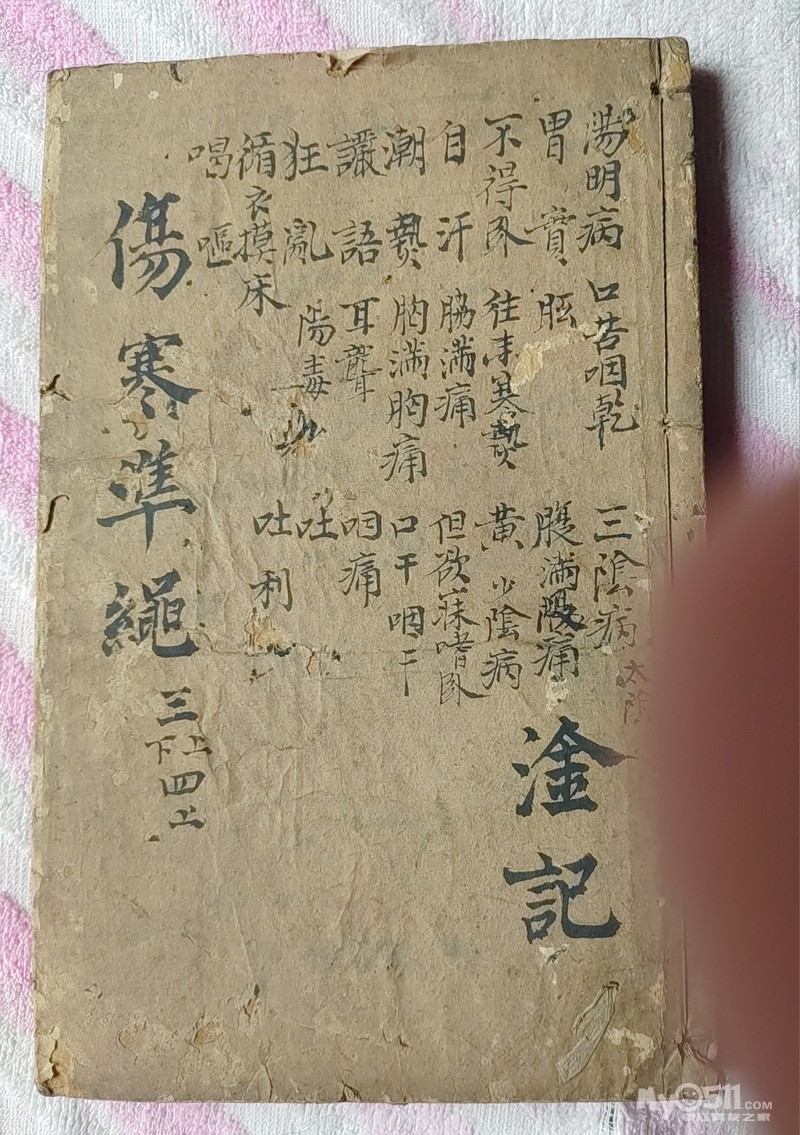 陽明病 口苦咽乾 三陰病
胃實 眩 腹滿 痛
不得卧 往来寒熱 黃 少陰病
自汗 脇滿痛 但欲寐嗜卧
潮熱 胸滿胸痛 口干咽干
讝語 耳聾 咽痛
狂亂 陽毒 吐
循衣摸床 吐利
喝嘔
淦記
傷寒準繩 三上下四上
MY0511.COM